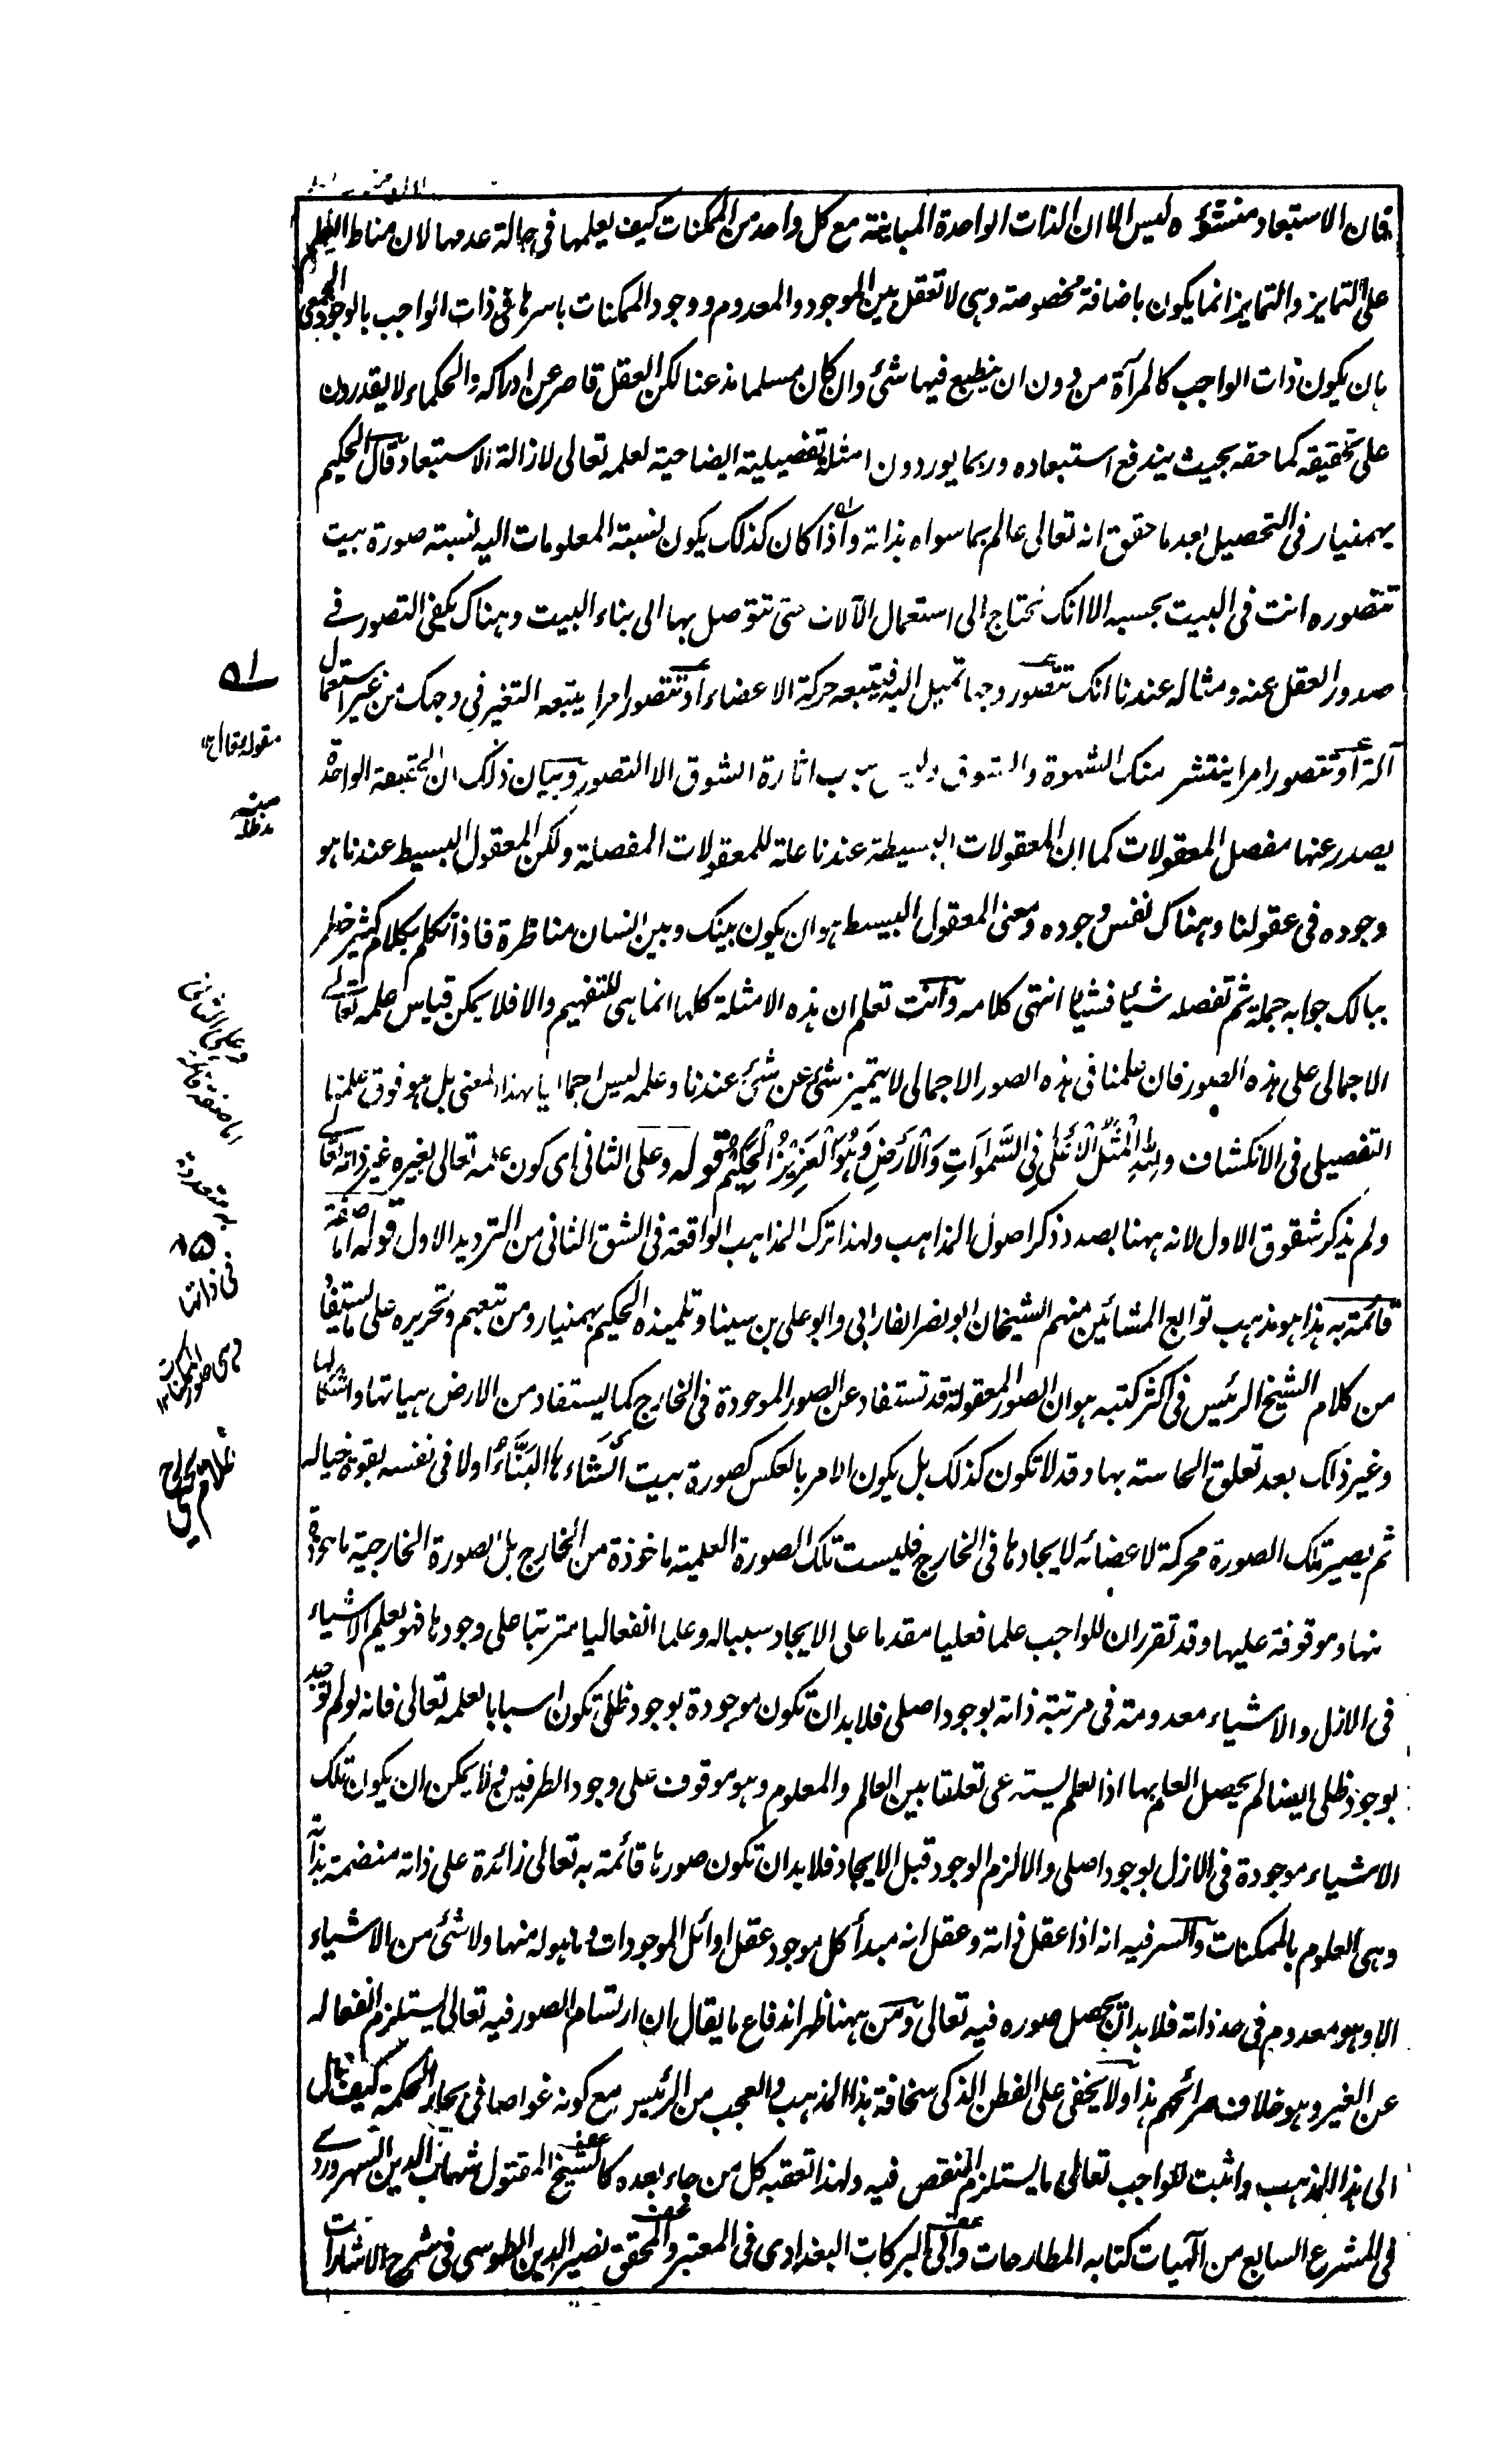 فان الاستبعاد منشؤه ليس الا ان الذات الواحدة المباينة مع كل واحد من الممكنات كيف يعلمها فى حالة عدمها لان مناط العلم
على التمايز والتمايز انما يكون باضافة مخصوصة وهى لا تعقل بين الموجود والمعدوم ووجود الممكنات باسرها فى ذات الواجب بالوجود الجمعى
بان يكون ذات الواجب كالمرآة من دون ان ينطبع فيها شئ وان كان مسلما مذعنا لكن العقل قاصر عن ادراكه والحكماء لا يقدرون
على تحقيقه كما حقه بحيث يندفع استبعاده وربما يوردون امثلة تفصيلية ايضاحية لعلمه تعالى لازالة الاستبعاد قال الحكيم
بهمنيار فى التحصيل بعد ما حقق انه تعالى عالم بما سواه بذاته واذا كان كذلك يكون نسبة المعلومات اليه نسبة صورة بيت
تتصوره انت فى البيت بحسبه الا انك تحتاج الى استعمال الآلات حتى تتوصل بها الى بناء البيت وهناك يكفى التصور فى
صدور العقل عنه ومثاله عندنا انك تتصور وجها تميل اليه فيتبعه حركة الاعضاء او تتصور امرا يتبعه التغير فى وجهك من غير استعمال
آلة او تتصور امرا ينتشر منك الشهوة والشوق وليس سبب اثارة الشوق الا التصور وبيان ذلك ان الواحدة
يصدر عنها مفصل المعقولات كما ان المعقولات البسيطة عندنا علة للمعقولات المفصلة ولكن المعقول البسيط عندنا هو
وجوده فى عقولنا وهناك نفس وجوده ومعنى المعقول البسيط هو ان يكون بينك وبين انسان مناظرة فاذا تكلم بكلام كثير خطر
ببالك جوابه جملة ثم تفصله شيئا فشيئا انتهى كلامه وانت تعلم ان هذه الامثلة كلها انما هى للتفهيم والا فلا يمكن قياس علمه تعالى
الاجمالى على هذه الصور فان علمنا فى هذه الصور الاجمالى لا يتميز شئ عن شئ عندنا وعلمه ليس اجماليا بهذا المعنى بل هو فوق علمنا
التفصيلى فى الانكشاف ولله المثل الأعلى فى السموات والأرض وهو العزيز الحكيم قوله وعلى الثانى اى كون علمه تعالى بغيره غير ذاته تعالى
ولم يذكر شقوق الاول لانه ههنا بصدد ذكر اصول المذاهب ولهذا ترك المذاهب الواقعة فى الشق الثانى من الترديد الاول قوله اما صفة
قائمة به هذا هو مذهب توابع المشائين منهم الشيخان ابو نصر الفارابى وابو على بن سينا وتلميذه الحكيم بهمنيار ومن تبعهم وتحريره على ما يستفاد
من كلام الشيخ الرئيس فى اكثر كتبه هو ان الصور المعقولة قد تستفاد عن الصور الموجودة فى الخارج كما يستفاد من الارض هيئاتها واشكالها
وغير ذلك بعد تعلق الحاسة بها وقد لا تكون كذلك بل يكون الامر بالعكس كصورة بيت أنشاءها البنّاء اولا فى نفسه بقوة خياله
ثم يصير تلك الصورة محركة لاعضائه لايجادها فى الخارج فليست تلك الصورة العلمية ماخوذة من الخارج بل الصورة الخارجية ماخوذة
منها وموقوفة عليها وقد تقرر ان للواجب علما فعليا مقدما على الايجاد سببا له وعلما انفعاليا مترتبا على وجودها فهو يعلم الاشياء
فى الازل والاشياء معدومة فى مرتبة ذاته بوجود اصلى فلا بد ان تكون موجودة بوجود ظلى تكون اسبابا لعلمه تعالى فانه لو لم توجد
بوجود ظلى ايضا لم يحصل العلم بها اذ العلم يستدعى تعلقا بين العالم والمعلوم وهو موقوف على وجود الطرفين ولا يمكن ان يكون تلك
الاشياء موجودة فى الازل بوجود اصلى والا لزم الوجود قبل الايجاد فلا بد ان تكون صورها قائمة به تعالى زائدة على ذاته منضمة بذاته
وهى العلوم بالممكنات والسر فيه انه اذا عقل ذاته وعقل انه مبدأ كل موجود عقل اوائل الموجودات وما يتولد منها ولا شئ من الاشياء
الا وهو معدوم فى حد ذاته فلا بد ان تحصل صوره فيه تعالى ومن ههنا ظهر اندفاع ما يقال ان ارتسام الصور فيه تعالى يستلزم انفعاله
عن الغير وهو خلاف صرائحهم هذا ولا يخفى على الفطن الذكى سخافة هذا المذهب والعجب من الرئيس مع كونه غواصا فى بحار الحكمة كيف مال
الى هذا المذهب واثبت للواجب تعالى ما يستلزم النقص فيه ولهذا تعقبه كل من جاء بعده كالشيخ المقتول شهاب الدين السهروردى
فى المشرع السابع من الٓهيات كتابه المطارحات وابى البركات البغدادى فى المعتبر والمحقق نصير الدين الطوسى فى شرح الاشارات
منه
مدظله
وعلى الثانى
اما صفة قائمة
به متعددة
فى ذاتها
وهى صور الممكنات ١٢